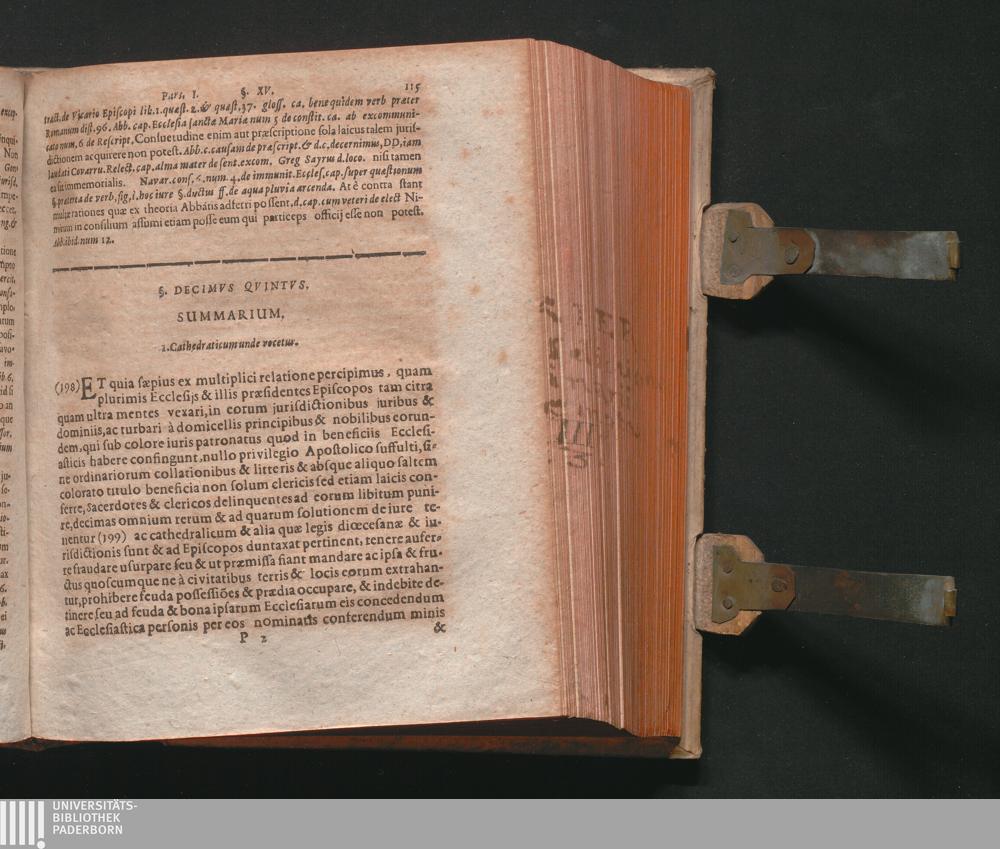 Pars. I. §. XV. 115
tract.de Vicario Episcopi lib.1.quæst.2.& quæst.37. gloss. ca. bene quidem verb præter
Romanum dist.96. Abb. cap. Ecclesia sanctæ Mariæ num 5 de constit. ca. ab excommuni-
cato num. 6 de Rescript, Consuetudine enim aut præscriptione sola laicus talem juris-
dictionem acquirere non potest. Abb. c. causam de præscript. & d.c. decernimus, DD, iam
laudati Covarru. Relect. cap. alma mater de sent. excom. Greg Sayrus d. loco. nisi tamen
ea sit immemorialis. Navar. cons. 6. num. 4. de immunit. Eccles. cap. super quæstionum
§. præterea de verb, sig, i. hoc iure §. ductus ff. de aqua pluvia arcenda. At è contra stant
multæ rationes quæ ex theoria Abbatis adferri possent, d. cap. cum veteri de elect Ni-
mirum in consilium assumi etiam posse eum qui particeps officij esse non potest.
Abb. ibid. num 12.
§. DECIMVS QVINTVS,
SUMMARIUM,
1. Cathedraticum unde vocetur.
(198) ET quia sæpius ex multiplici relatione percipimus, quam
plurimis Ecclesijs & illis præsidentes Episcopos tam citra
quam ultra mentes vexari, in eorum jurisdictionibus juribus &
dominiis, ac turbari à domicellis principibus & nobilibus eorun-
dem, qui sub colore iuris patronatus quod in beneficiis Ecclesi-
asticis habere confingunt, nullo privilegio Apostolico suffulti, si-
ne ordinariorum collationibus & litteris & absque aliquo saltem
colorato titulo beneficia non solum clericis sed etiam laicis con-
ferre, Sacerdotes & clericos delinquentes ad eorum libitum puni-
re, decimas omnium rerum & ad quarum solutionem de iure te-
nentur (199) ac cathedralicum & alia quæ legis diœcesanæ & iu-
risdictionis sunt & ad Episcopos duntaxat pertinent, tenere aufer-
re fraudare usurpare seu & ut præmissa fiant mandare ac ipsa & fru-
ctus quoscumque ne à civitatibus terris & locis eorum extrahan-
tur, prohibere feuda possessiões & prædia occupare, & indebite de-
tinere seu ad feuda & bona ipsarum Ecclesiarum eis concedendum
ac Ecclesiastica personis per eos nominatis conferendum minis
P 2 &
UNIVERSITÄTS-
BIBLIOTHEK
PADERBORN